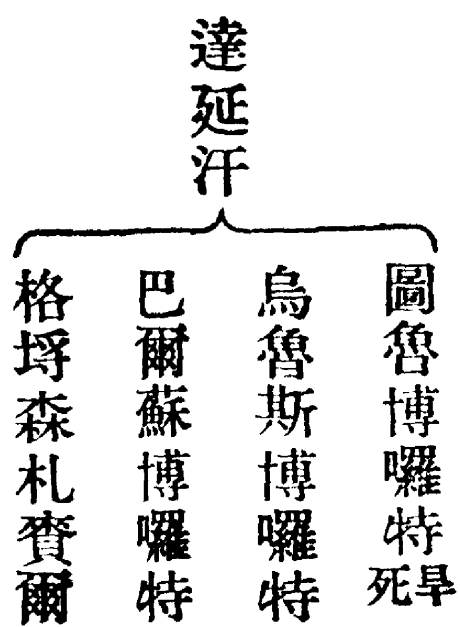 達延汗
圖魯博囉特早死
烏魯斯博囉特
巴爾蘇博囉特
格埒森札賚爾